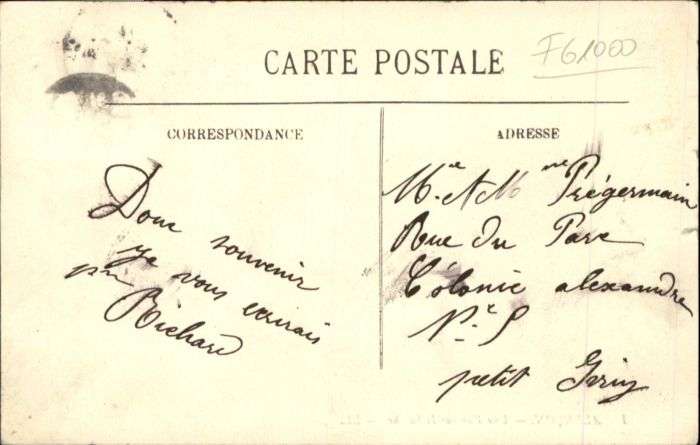 F61000
CARTE POSTALE
CORRESPONDANCE
Doux souvenir
je vous écrirais
Richard
ADRESSE
Mr et Mme Prégermain
Rue du Parc
Colonie alexandre
N° 5
petit Ivry